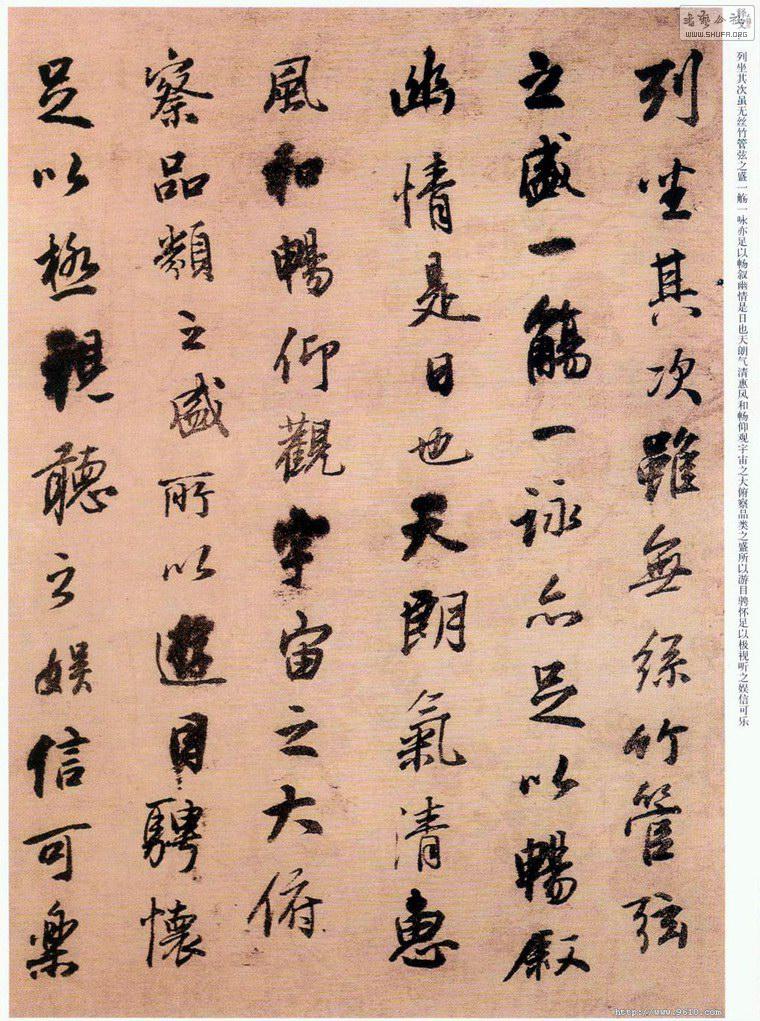 列坐其次雖無絲竹管弦
之盛一觴一詠亦足以暢叙
幽情是日也天朗氣清惠
風和暢仰觀宇宙之大俯
察品類之盛所以遊目騁懷
足以極視聽之娛信可樂
释文
列坐其次虽无丝竹管弦之盛一觞一咏亦足以畅叙幽情是日也天朗气清惠风和畅仰观宇宙之大俯察品类之盛所以游目骋怀足以极视听之娱信可乐
WWW.SHUFA.ORG
http://www.9610.com